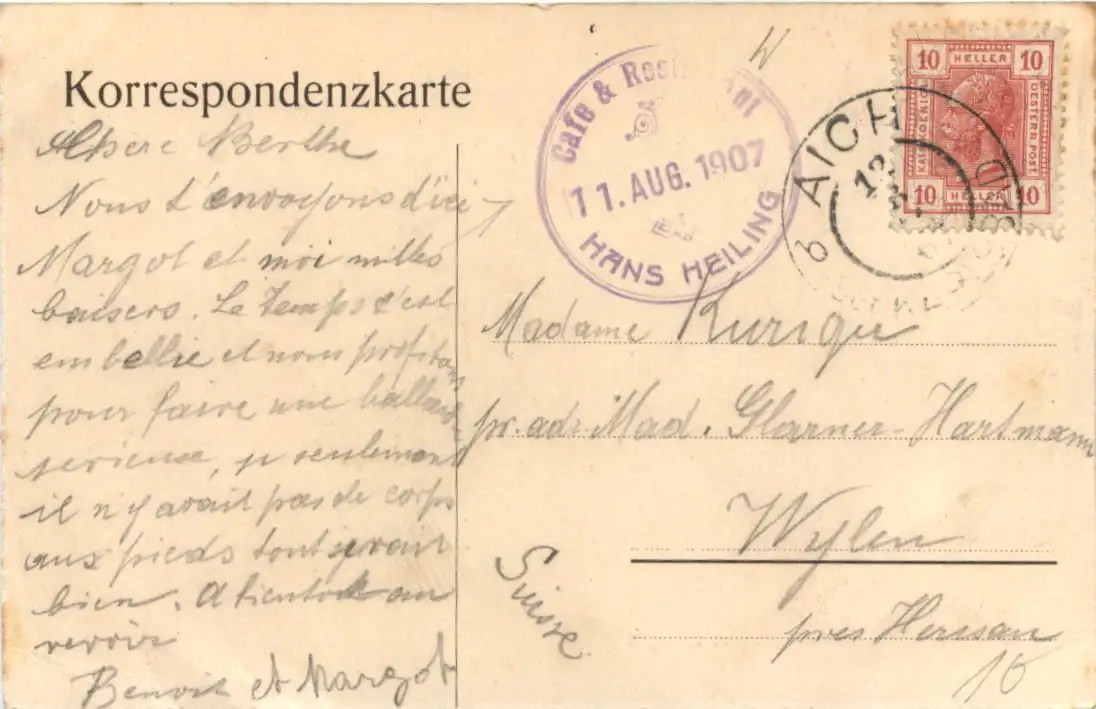 Korrespondenzkarte
Chere Berthe
Nous t'envoyons d'ici
Margot et moi milles
baisers. Le temps s'est
embellie et nous profitons
pour faire une ballade
serieuse, si seulement
il n'y avait pas de corps
aux pieds tout serait
bien. A bientot au
revoir
Benoit et Margot
Cafe & Restaurant
11. AUG. 1907
HANS HEILING
10 HELLER 10
KAIS. KÖNIGL.
OESTERR. POST
10 HELLER 10
AICH
12
b
Madame Kurigu
pr. adr. Mad. Glarner-Hartmann
Wylen
Suisse
près Herisau
10